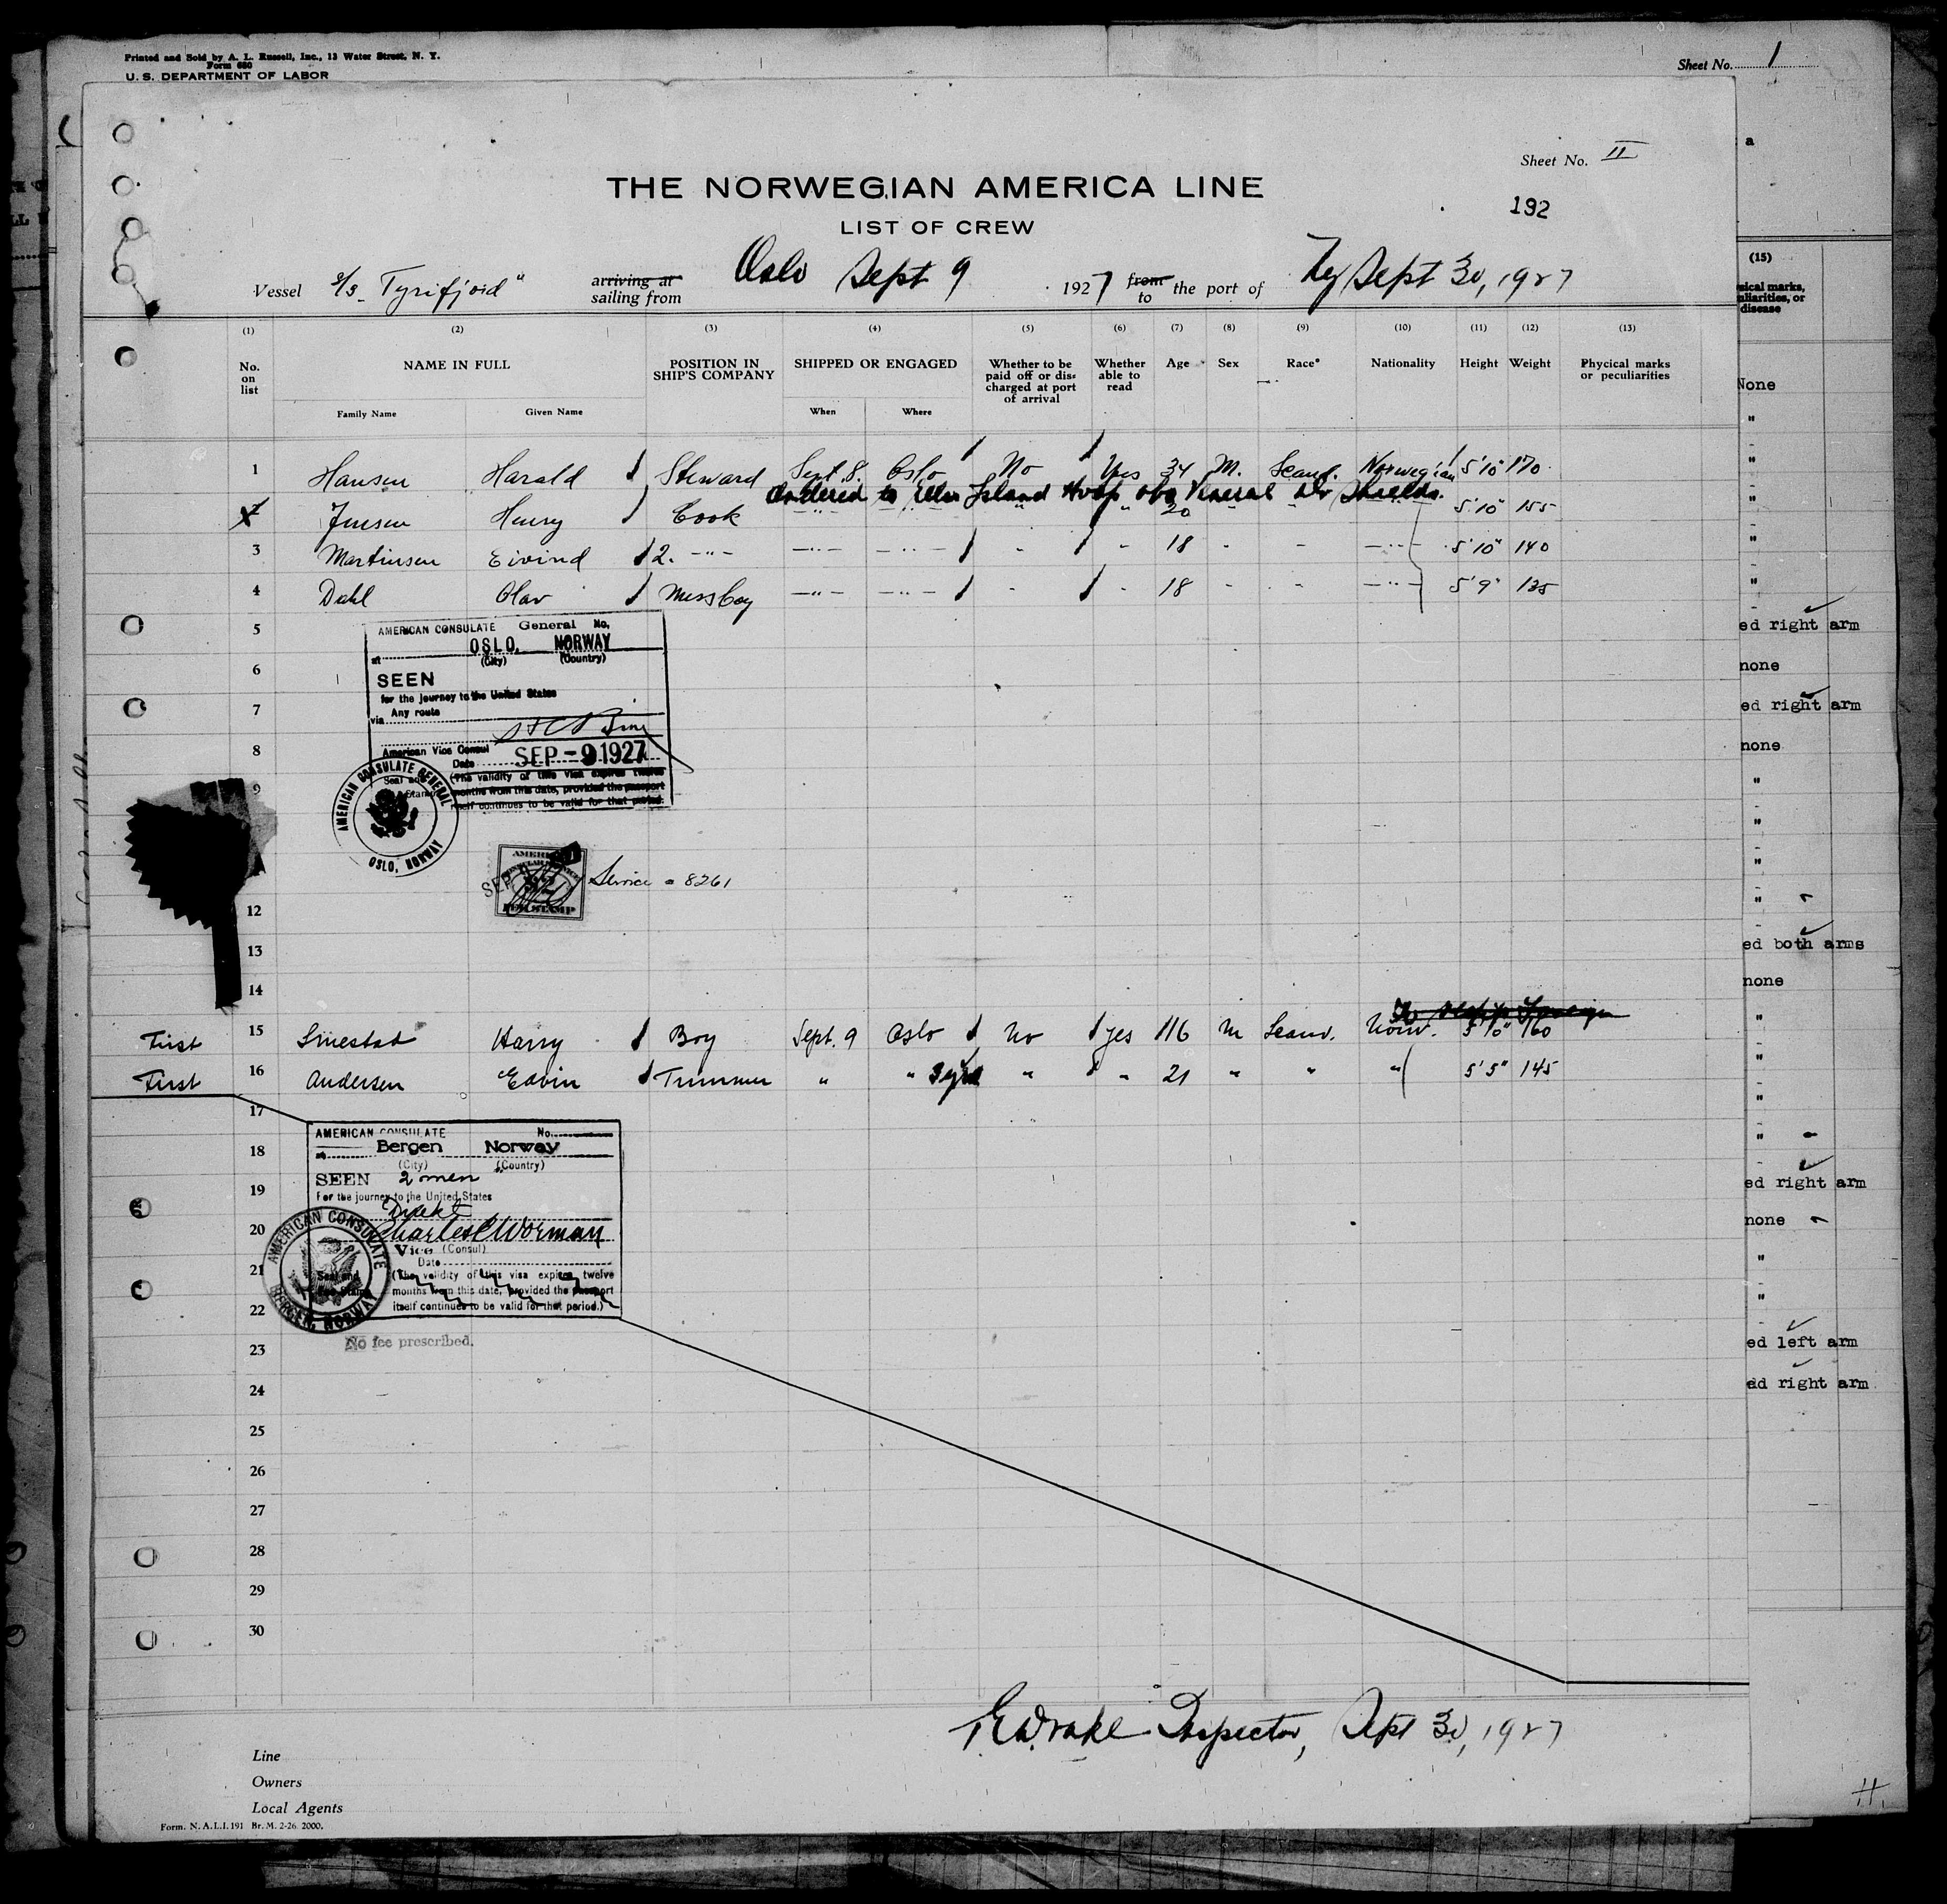 Printed and Sold by A. L. Russell, Inc., 12 Water Street, N. Y.
Form 680
U. S. DEPARTMENT OF LABOR
Sheet No. 1
Sheet No. II
THE NORWEGIAN AMERICA LINE
192
LIST OF CREW
Vessel S/S "Tyrifjord" arriving at sailing from Oslo Sept 9 1927 from to the port of Ny Sept 30, 1927
(1) (2) (3) (4) (5) (6) (7) (8) (9) (10) (11) (12) (13) (15)
No. on list NAME IN FULL POSITION IN SHIP'S COMPANY SHIPPED OR ENGAGED Whether to be paid off or discharged at port of arrival Whether able to read Age Sex Race* Nationality Height Weight Physical marks or peculiarities
Family Name Given Name When Where
sical marks,
uliarities, or
disease
None
1 Hansen Harald Steward Sept. 8. Oslo No Yes 34 M. Scand. Norwegian 5'10" 170
Ordered to Ellis Island Hosp
2 Jensen Henry Cook -"- -"- " " 20 " " -"- 5'10" 155
3 Martinsen Eivind 2. -"- -"- -"- " " 18 " " -"- 5'10" 140
4 Dahl Olav Messboy -"- -"- " " 18 " " -"- 5'9" 135
5
6
7
8
9
12
13
14
AMERICAN CONSULATE General No.
at OSLO, NORWAY
(City) (Country)
SEEN
for the journey to the United States
via Any route
American Vice Consul
Date SEP -9 1927
Seal and
Stamp
(The validity of this visa expires twelve
months from this date, provided the passport
itself continues to be valid for that period.
AMERICAN CONSULATE GENERAL
OSLO, NORWAY
SEP
FEE STAMP
Service = 8261
First 15 Smestad Harry Boy Sept. 9 Oslo No yes 16 M Scand. Norw. 5'10" 160
First 16 Andersen Edvin Trimmer " " " " 21 " " " 5'5" 145
17
18
19
20
21
22
23
24
25
26
27
28
29
30
AMERICAN CONSULATE No.
at Bergen Norway
(City) (Country)
SEEN 2 men
For the journey to the United States
Direkt
Vice (Consul)
Date
Seal and
Fee Stamp
(The validity of this visa expires twelve
months from this date, provided the passport
itself continues to be valid for that period.)
AMERICAN CONSULATE
BERGEN, NORWAY
No fee prescribed.
ed right arm
none
ed right arm
none
ed both arms
none
ed right arm
none
ed left arm
ed right arm
Inspector, Sept 30, 1927
Line
Owners
Local Agents
Form. N.A.L.I.191 Br. M. 2-26. 2000.